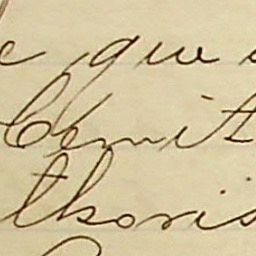 e que
Comit
thoris